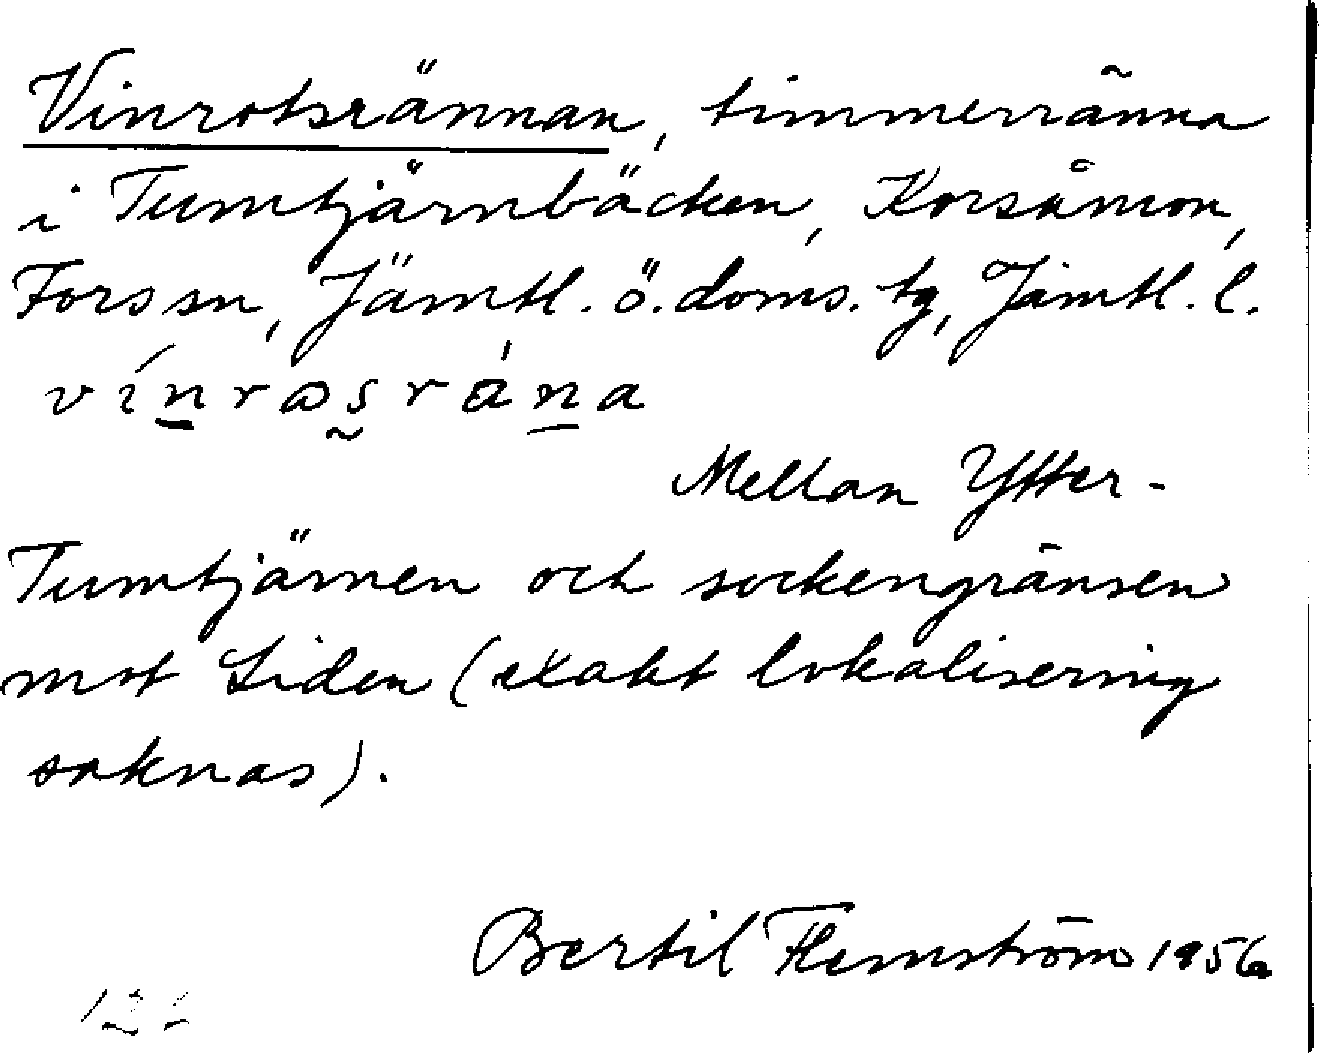 Vinrotsrännan, timmerränna
i Tumtjärnbäcken, Korsåmon,
Fors sn, Jämtl. ö. doms. tg, Jämtl. l.
Mellan Ytter-
Tumtjärnen och sockengränsen
mot Liden (exakt lokalisering
saknas).
Bertil Flemström 1956